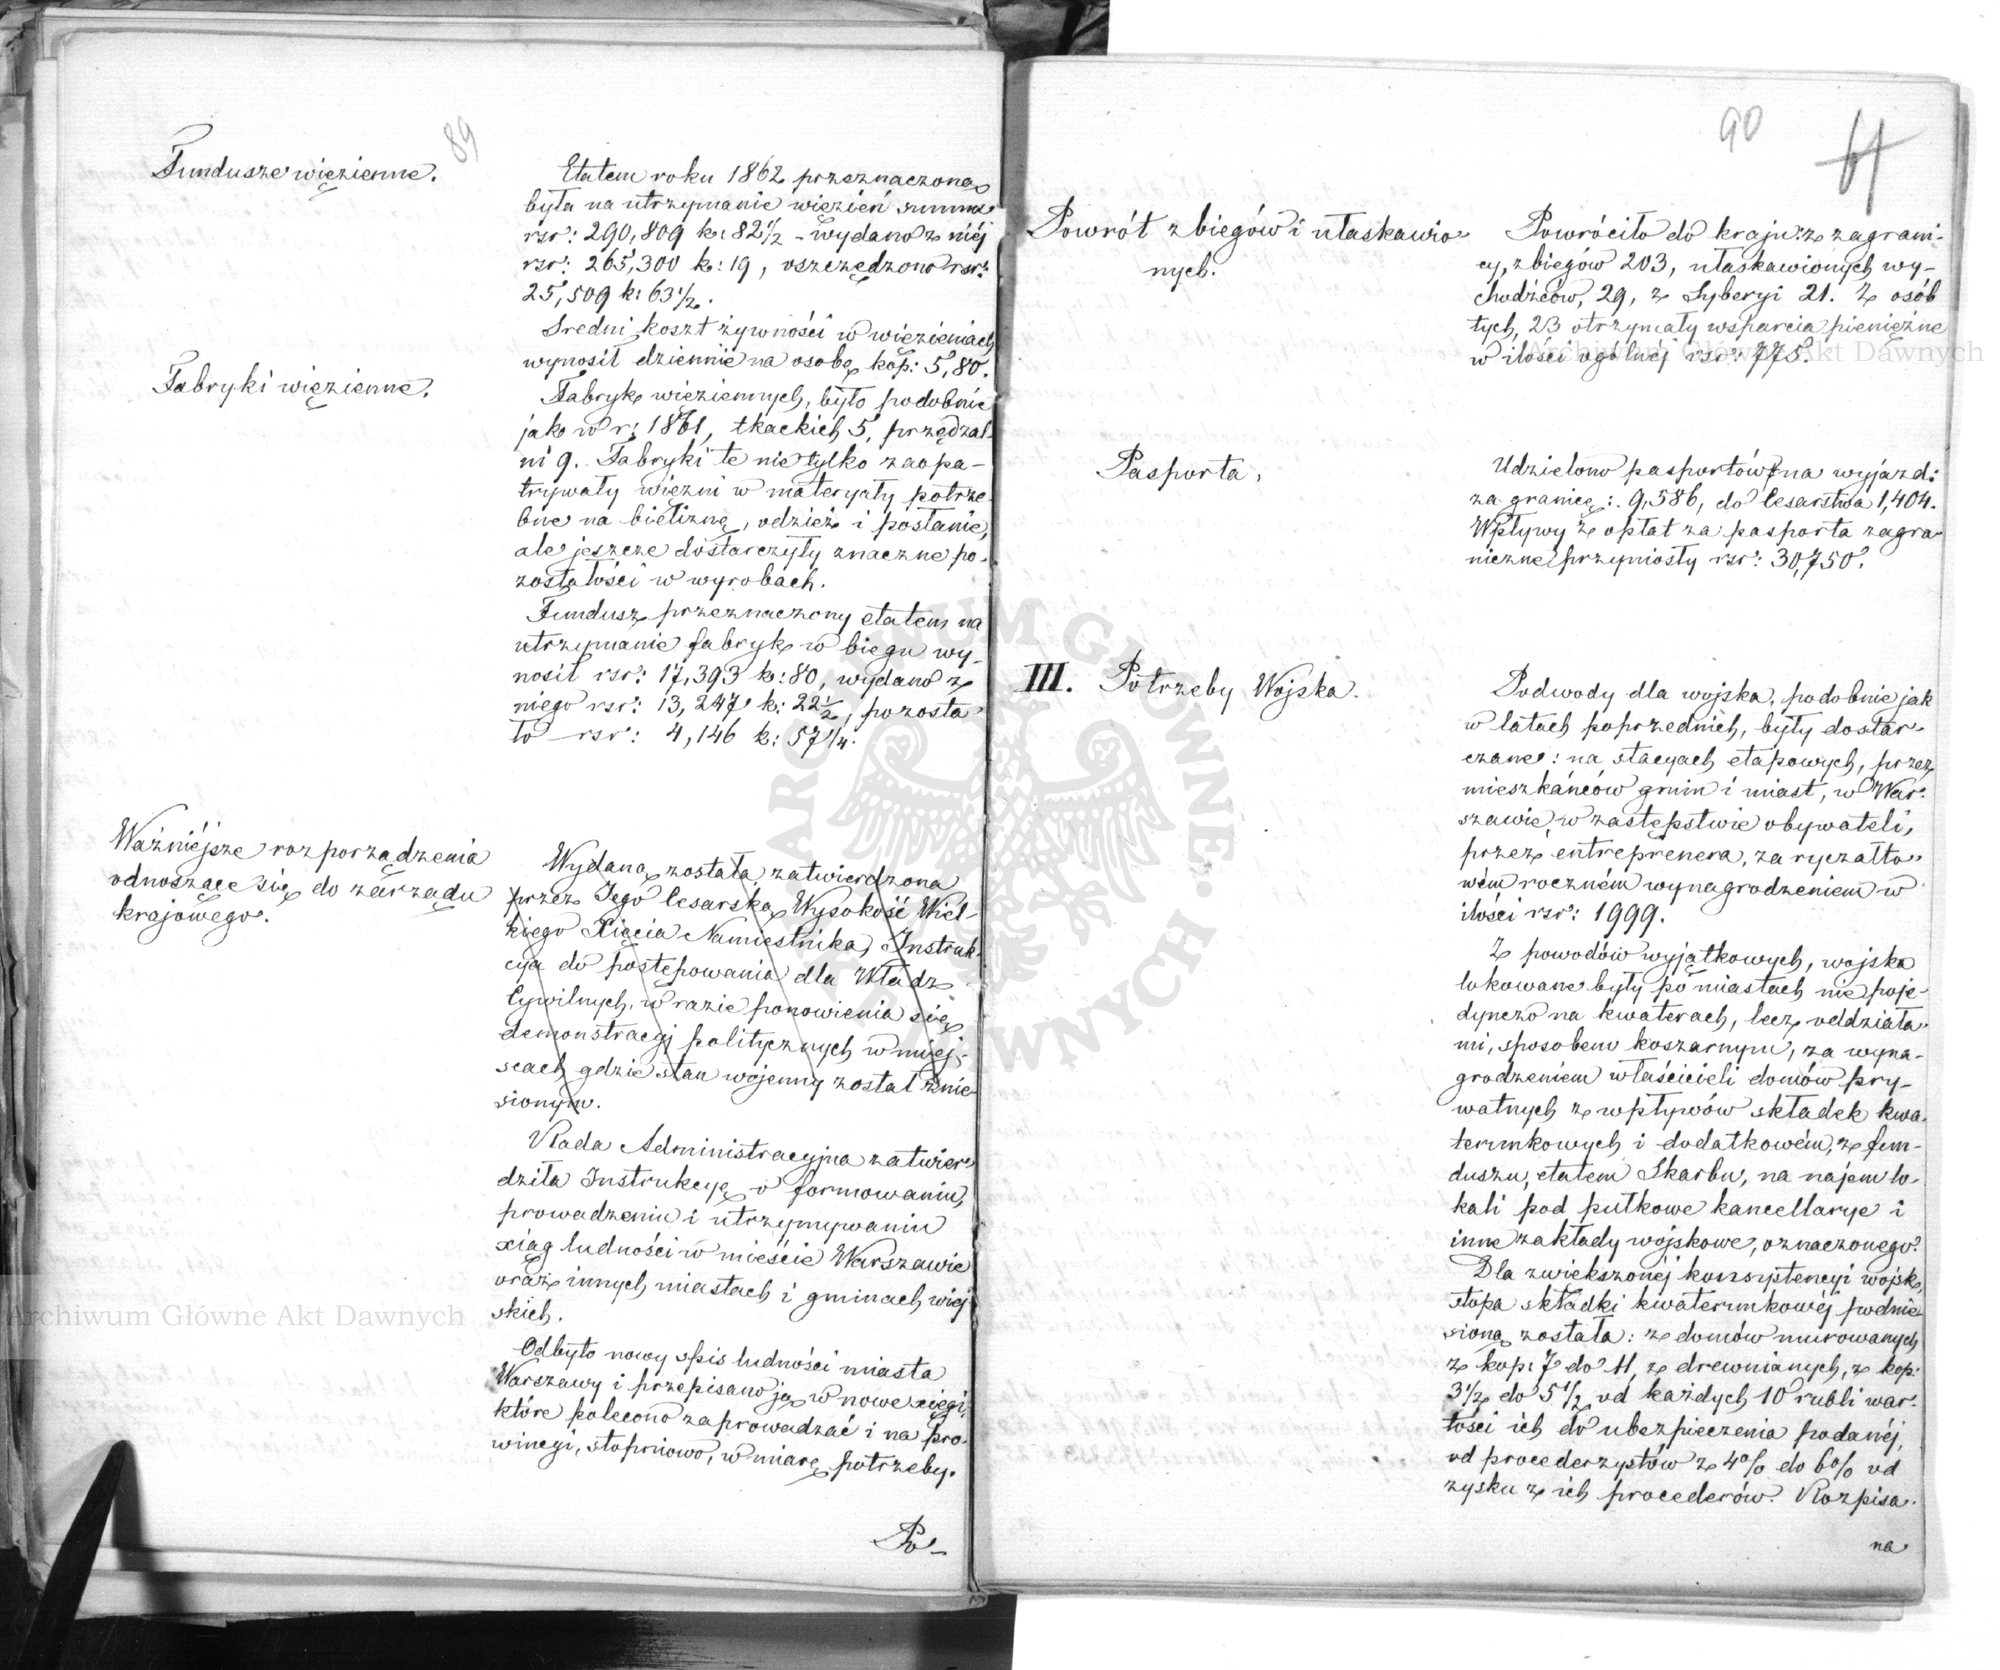 89
Fundusze więzienne.
Etatem roku 1862 przeznaczona
była na utrzymanie więzień summa
rsr: 290,809 k: 82½ – wydano z niéj
rsr: 265,300 k: 19, oszczędzono rsr:
25,509 k: 63½.
Sredni koszt żywności w więzieniach
wynosił dziennie na osobę kop: 5,80.
Fabryki więzienne.
Fabryk więziennych, było podobnie
jak w r: 1861, tkackich 5, przędzal-
ni 9. Fabryki te nie tylko zaopa-
trywały więzni w materyały potrze-
bne na bieliznę, odzież i posłanie,
ale jeszcze dostarczyły znaczne po-
zostałości w wyrobach.
Fundusz przeznaczony etatem na
utrzymanie fabryk w biegu wy-
nosił rsr: 17,393 k: 80, wydano z
niego rsr: 13,247 k: 22½, pozosta
ło rsr: 4,146 k: 57¼.
Ważniéjsze rozporządzenia
odnoszące się do zarządu
krajowego.
Wydana została zatwierdzona
przez Jego Cesarską Wysokość Wiel-
kiego Xięcia Namiestnika, Instruk-
cya do postępowania dla Władz
Cywilnych, w razie ponowienia się
demonstracyj politycznych w miej-
scach gdzie stan wojenny został znie
sionym.
Rada Administracyjna zatwier
dziła Instrukcyę o formowaniu,
prowadzeniu i utrzymywaniu
xiąg ludności w mieście Warszawie
oraz innych miastach i gminach wiej
skich.
Odbyto nowy spis ludności miasta
Warszawy i przepisano ją w nowe xięgi,
które polecono zaprowadzać i na pro-
wincyi, stopniowo, w miarę potrzeby.
Po-
90
61
Powrót zbiegów i ułaskawio
nych.
Powróciło do kraju: z zagrani-
cy, zbiegów 203, ułaskawionych wy-
chodźców, 29, z Syberyi 21. Z osób
tych, 23 otrzymały wsparcia pieniężne
w ilości ogólnéj rsr: 775.
Pasporta.
Udzielono pasportów na wyjazd:
za granicę: 9,586, do Cesarstwa 1,404.
Wpływy z opłat za pasporta zagra
niczne przyniosły rsr: 30,750.
III. Potrzeby Wojska.
Podwody dla wojska, podobnie jak
w latach poprzednich, były dostar-
czane: na stacyach etapowych, przez
mieszkańców gmin i miast, w War-
szawie, w zastępstwie obywateli,
przez entreprenera, za ryczałto-
wém roczném wynagrodzeniem w
ilości rsr: 1999.
Z powodów wyjątkowych, wojska
lokowane były po miastach nie poje-
dynczo na kwaterach, lecz oddziała-
mi, sposobem koszarnym, za wyna-
grodzeniem właścicieli domów pry-
watnych z wpływów składek kwa-
terunkowych i dodatkowém, z fun-
duszu, etatem Skarbu, na najem lo-
kali pod pułkowe kancellarye i
inne zakłady wojskowe, oznaczonego.
Dla zwiększonéj konsystencyi wojsk,
stopa składki kwaterunkowéj podnie
sioną została: z domów murowanych
z kop: 7 do 11, z drewnianych, z kop:
3½ do 5½ od każdych 10 rubli war-
tości ich do ubezpieczenia podanéj,
od procederzystów z 4% do 6% od
zysku z ich procederów. Rozpisa-
na
Archiwum Główne Akt Dawnych
Archiwum Główne Akt Dawnych
ARCHIWUM GŁÓWNE AKT DAWNYCH